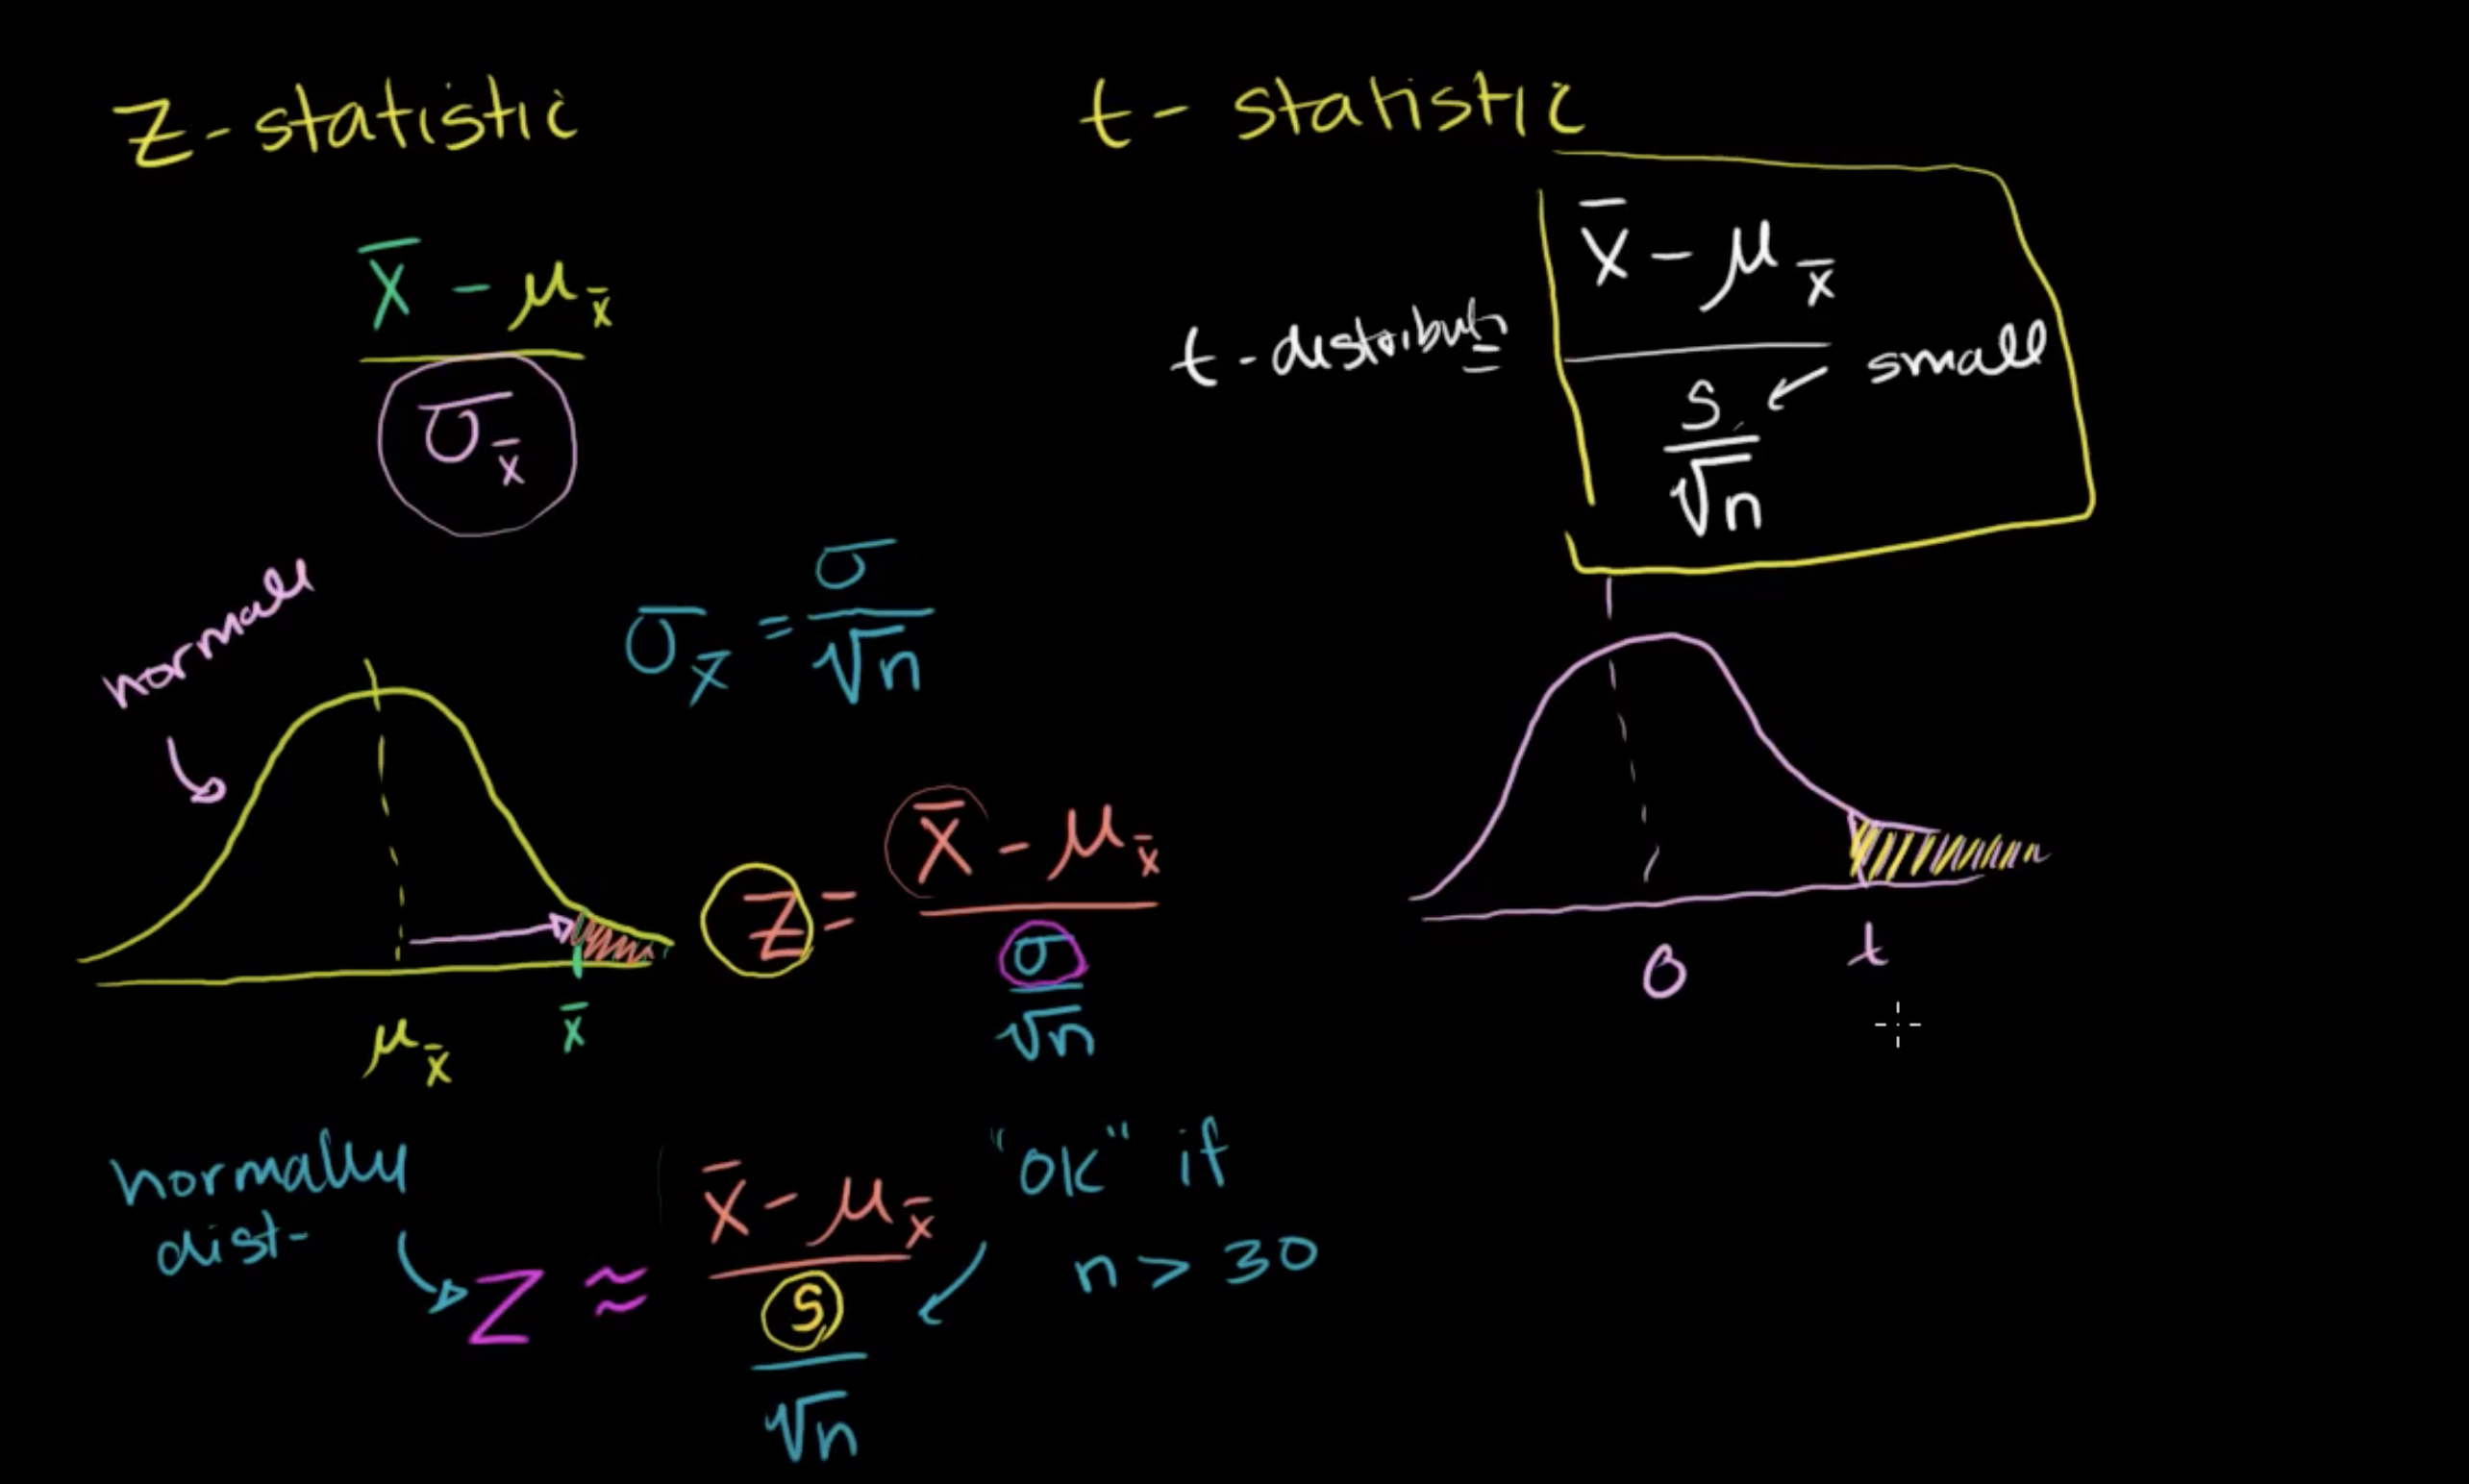 Z-statistic
x̄ - μx̄
σx̄
normal
σx̄ = σ/√n
μx̄
x̄
Z = (x̄ - μx̄)/(σ/√n)
normally
dist-
Z ≈ (x̄ - μx̄)/(s/√n)
"OK" if
n > 30
t-statistic
t-distributn
x̄ - μx̄
s/√n
small
0
t